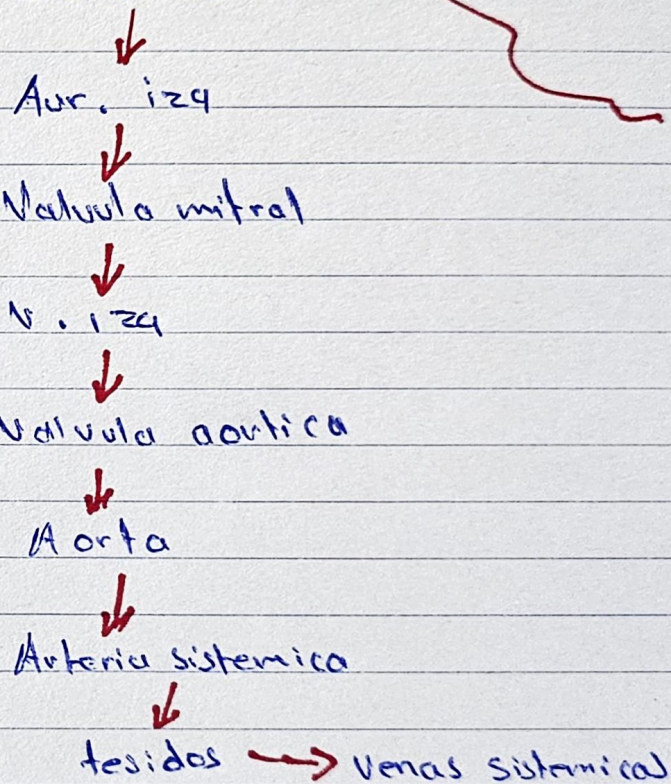 Aur. izq
Valvula mitral
V. izq
Valvula aortica
Aorta
Arteria sistemica
tesidos → venas sistemical